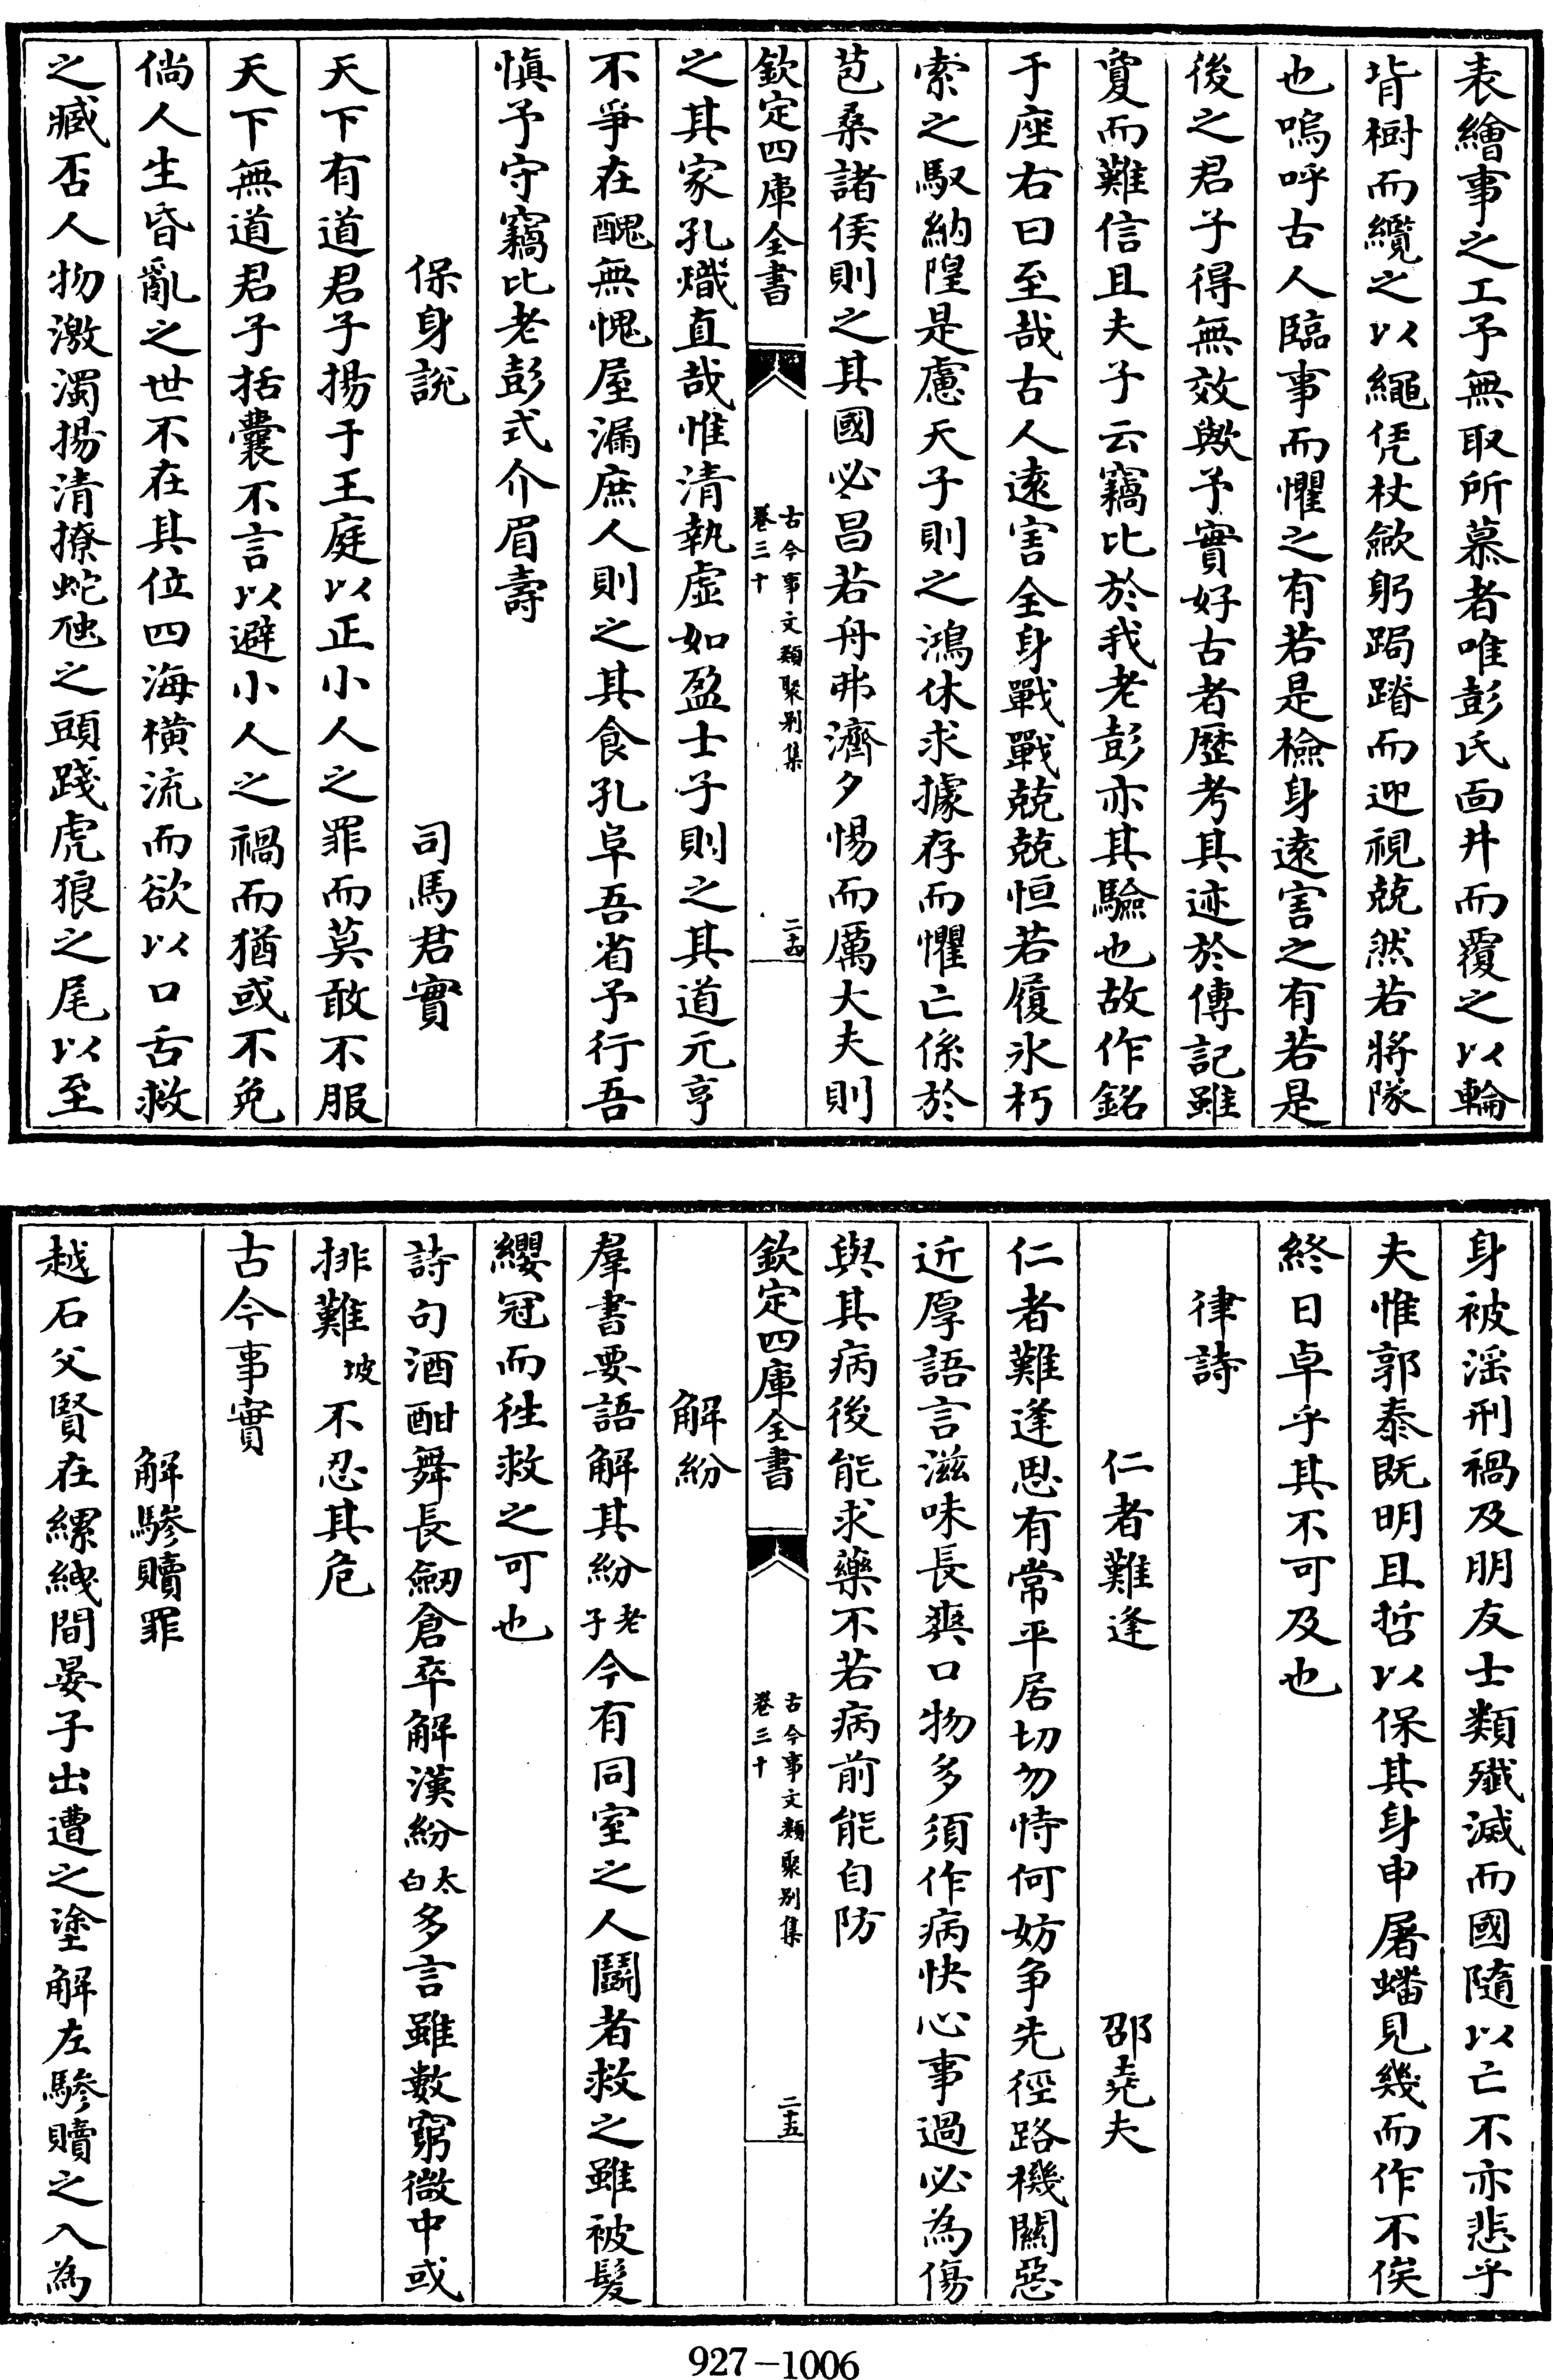 表繪事之工予無取所慕者唯彭氏面井而覆之以輪
背樹而纜之以繩凭杖歛躬跼蹐而迎視兢然若將隊
也嗚呼古人臨事而懼之有若是檢身遠害之有若是
後之君子得無效歟予實好古者歷考其迹於傳記雖
敻而難信且夫子云竊比於我老彭亦其驗也故作銘
于座右曰至哉古人遠害全身戰戰兢兢恒若履氷朽
索之馭納隍是慮天子則之鴻休求據存而懼亡係於
苞桑諸侯則之其國必昌若舟弗濟夕惕而厲大夫則
欽定四庫全書
古今事文類聚别集
卷三十
二十四
之其家孔熾直哉惟清執虛如盈士子則之其道元亨
不爭在醜無愧屋漏庶人則之其食孔阜吾省予行吾
愼予守竊比老彭式介眉壽
保身說 司馬君實
天下有道君子揚于王庭以正小人之罪而莫敢不服
天下無道君子括囊不言以避小人之禍而猶或不免
倘人生昏亂之世不在其位四海横流而欲以口舌救
之臧否人物激濁揚清撩蛇虺之頭踐虎狼之尾以至
身被滛刑禍及朋友士類殲滅而國隨以亡不亦悲乎
夫惟郭泰既明且哲以保其身申屠蟠見幾而作不俟
終日卓乎其不可及也
律詩
仁者難逢 邵堯夫
仁者難逢思有常平居切勿恃何妨争先徑路機關惡
近厚語言滋味長爽口物多須作病快心事過必為傷
與其病後能求藥不若病前能自防
欽定四庫全書
古今事文類聚别集
卷三十
二十五
解紛
羣書要語解其紛老子今有同室之人鬭者救之雖被髮
纓冠而徃救之可也
詩句酒酣舞長劒倉卒解漢紛太白多言雖數窮微中或
排難坡不忍其危
古今事實
解驂贖罪
越石父賢在縲絏間晏子出遭之塗解左驂贖之入為
927-1006